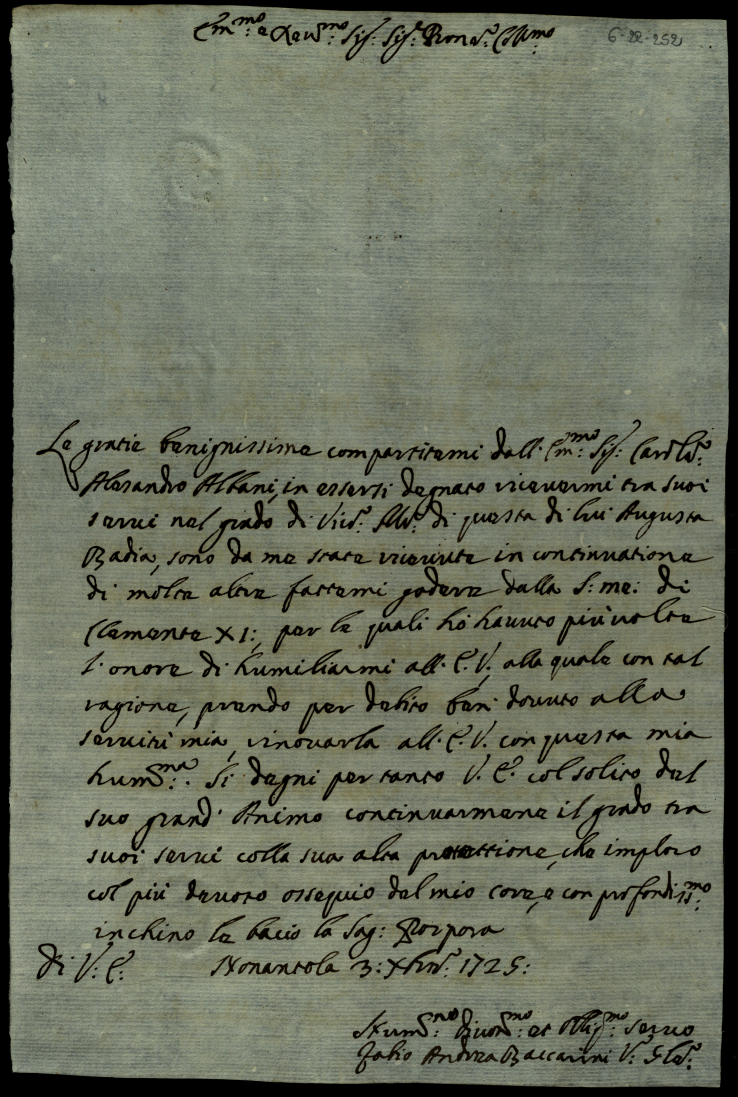 Em.mo e Rev.mo Sig.r Sig.r Pron. Col.mo
6-22-252
Le gratie benignissime compartitemi dall' Em.mo Sig.r Card.le
Alesandro Albani, in essersi degnato ricevermi tra suoi
servi nel grado di Vic.o di questa di lui Augusta
Badia, sono da me state ricevute in continuatione
di molte altre fattemi godere dalla S: me: di
Clemente XI:, per le quali hò havuto più volte
l'onore di humiliarmi all' E. V., alla quale con tal
ragione, prendo per debito ben dovuto alla
servitù mia, rinovarla all' E. V. con questa mia
hum.ma: Si degni per tanto V. E. col solito del
suo grand' Animo continuarmene il grado tra
suoi servi colla sua alta protettione, che imploro
col più devoto ossequio del mio core, e con profondiss.mo
inchino le bacio la Sag: Porpora
Di V: E. Nonantola 3: Xbre: 1725:
Hum.mo Divot.mo et Oblig.mo servo
Fabio Andrea Baccarini V.